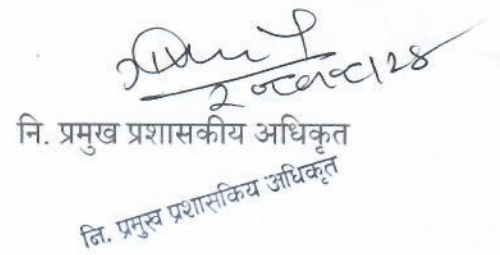 नि. प्रमुख प्रशासकीय अधिकृत
नि. प्रमुख प्रशासकिय अधिकृत